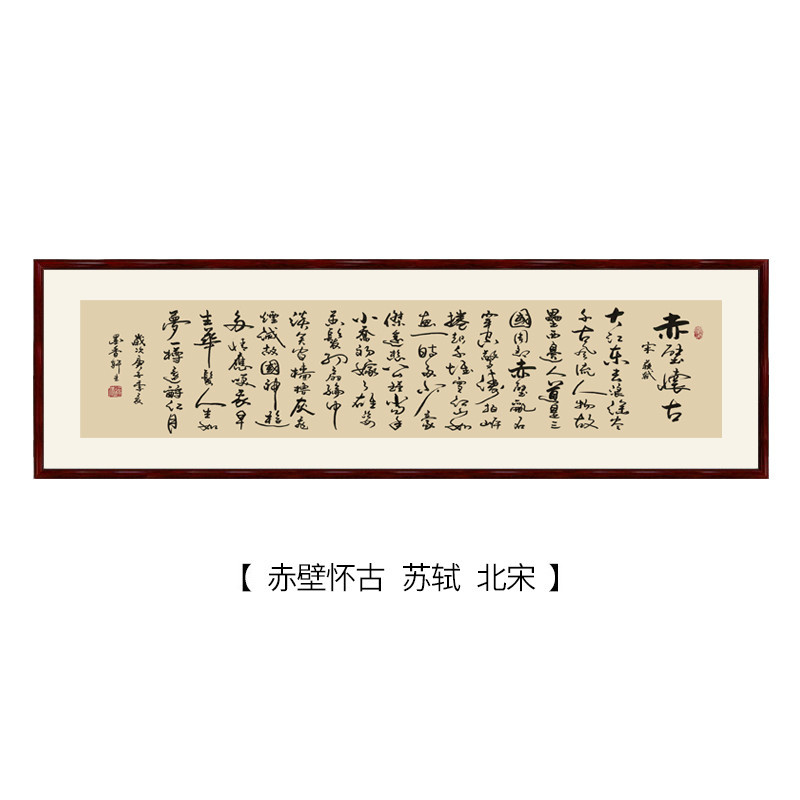 赤壁懷古
宋 蘇軾
大江東去浪淘尽
千古風流人物故
壘西邊人道是三
國周郎赤壁亂石
穿空驚濤拍岸
捲起千堆雪江山如
画一時多少豪
傑遙想公瑾當年
小喬初嫁了雄姿
英發羽扇綸巾
談笑间檣櫓灰飛
煙滅故國神遊
多情應笑我早
生華髮人生如
夢一樽還酹江月
歲次庚子季夏
墨香軒主
【 赤壁怀古 苏轼 北宋 】